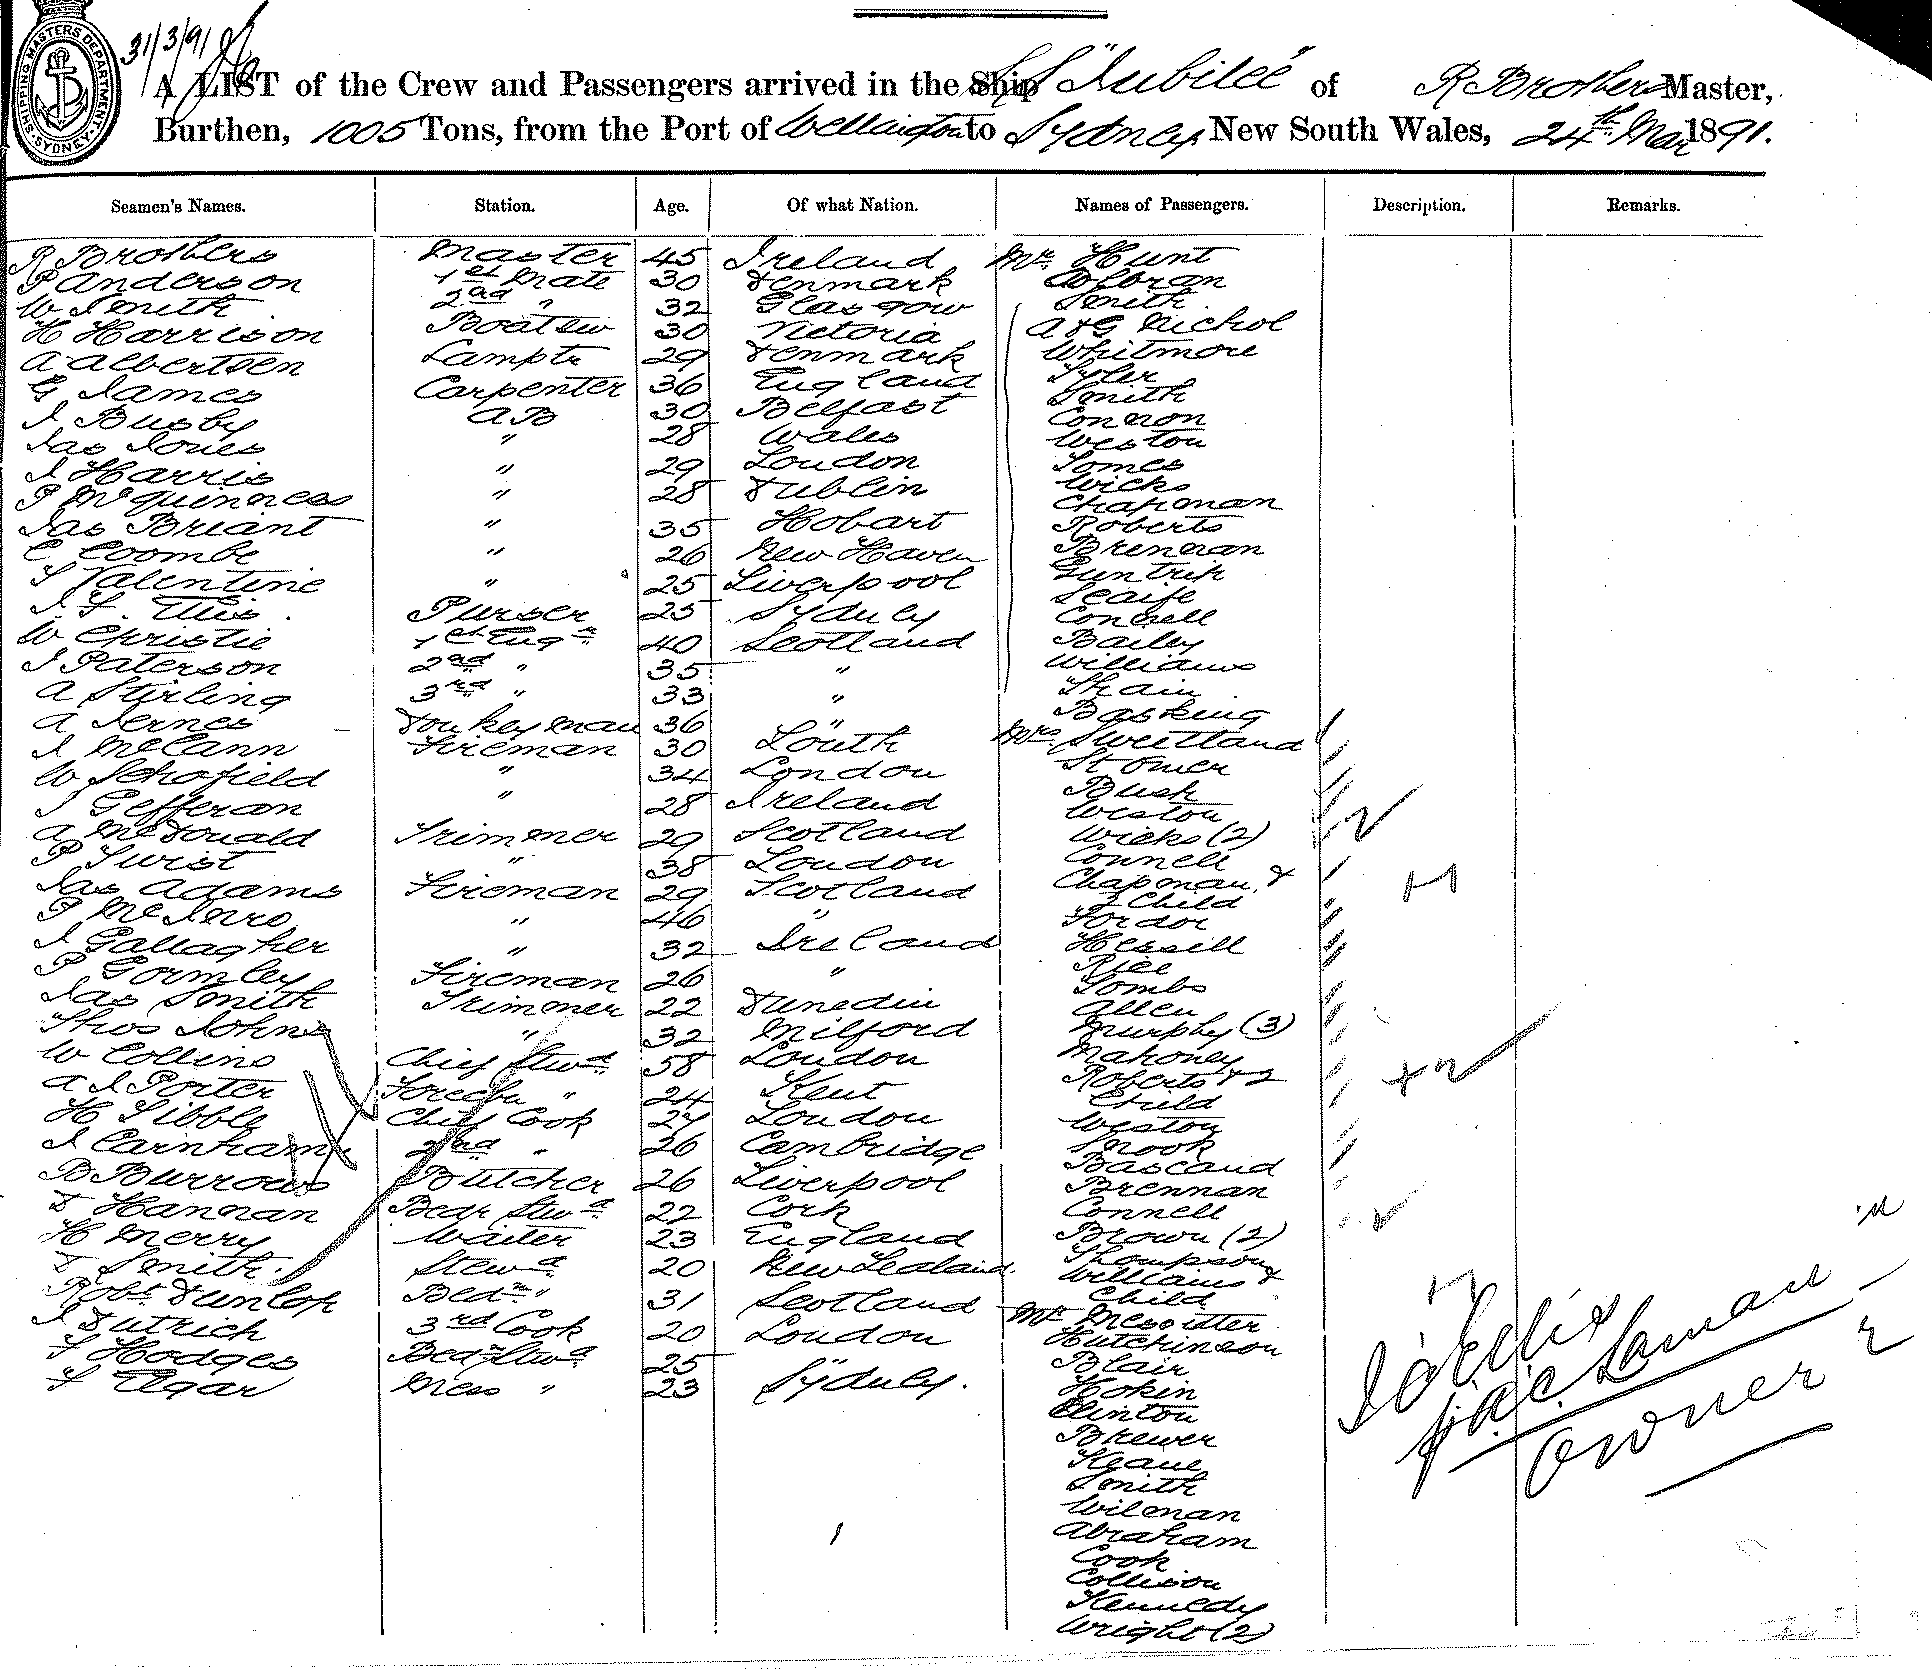 SHIPPING MASTERS DEPARTMENT
SYDNEY
31/3/91
A LIST of the Crew and Passengers arrived in the Ship SS "Jubilee" of R Brothers Master,
Burthen, 1005 Tons, from the Port of Wellington to Sydney New South Wales, 24th Mar 1891.
Seamen's Names. Station. Age. Of what Nation. Names of Passengers. Description. Remarks.
R Brothers Master 45 Ireland Mr. Hunt
P Anderson 1st Mate 30 Denmark
W Smith 2nd " 32 Glasgow Smith
H Harrison Boatsw 30 Victoria A & G Nichol
A Albertsen Lamptr 29 Denmark Whitmore
G James Carpenter 36 England Tyler
J Busby AB 30 Belfast Smith
Jas Jones " 28 Wales Connon
J Harris " 29 London Weston
P McGuinness " 28 Dublin Tomes
Jas Briant " 35 Hobart Wicks
C Coombe " 26 New Haven Chapman
S Valentine " 25 Liverpool Roberts
J. F. Ellis Purser 25 Sydney Brennan
W Christie 1st Engr 40 Scotland Guntrip
J Paterson 2nd " 35 " Scaife
A Stirling 3rd " 33 " Connell
A Jernes Donkeyman 36 " Bailey
J McCann Fireman 30 Louth Williams
W Schofield " 34 London Strain
J Gefferan " 28 Ireland Basking
A McDonald Trimmer 29 Scotland Mrs Sweetland
P Twist " 38 London Stomer
Jas Adams Fireman 29 Scotland Bush
P McInro " 46 " Weston
J Gallagher " 32 Ireland Wicks (2)
P Gormley Fireman 26 " Connell
Jas Smith Trimmer 22 Dunedin Chapman &
Thos Johns " 32 Milford Child
W Collins Chief Stwd 58 London Fordor
A J Porter Forecbn " 24 Kent Hessell
H Sibble Chief Cook 27 London Rice
J Carnham 2nd " 26 Cambridge Tombs
B Burrows Butcher 26 Liverpool Allen
D Hannan Bedr Stwd 22 Cork Murphy (3)
H Merry Waiter 23 England Mahoney
D Smith Stewd 20 New Zealand Roberts & 2
Robt Dunlop Bedr " 31 Scotland Child
J Dutrich 3rd Cook 20 London Weston
F Hodges Bedr Stwd 25 " Snook
F Agar Mess " 23 Sydney. Bascand
Brennan
Connell
Brown (2)
Thompson &
Williams &
Child
Mr Messitter
Hutchinson
Blair
Hokin
Clinton
Brewer
Keane
Smith
Wilman
Abraham
Cook
Collison
Kennedy
Wright (2)
owner